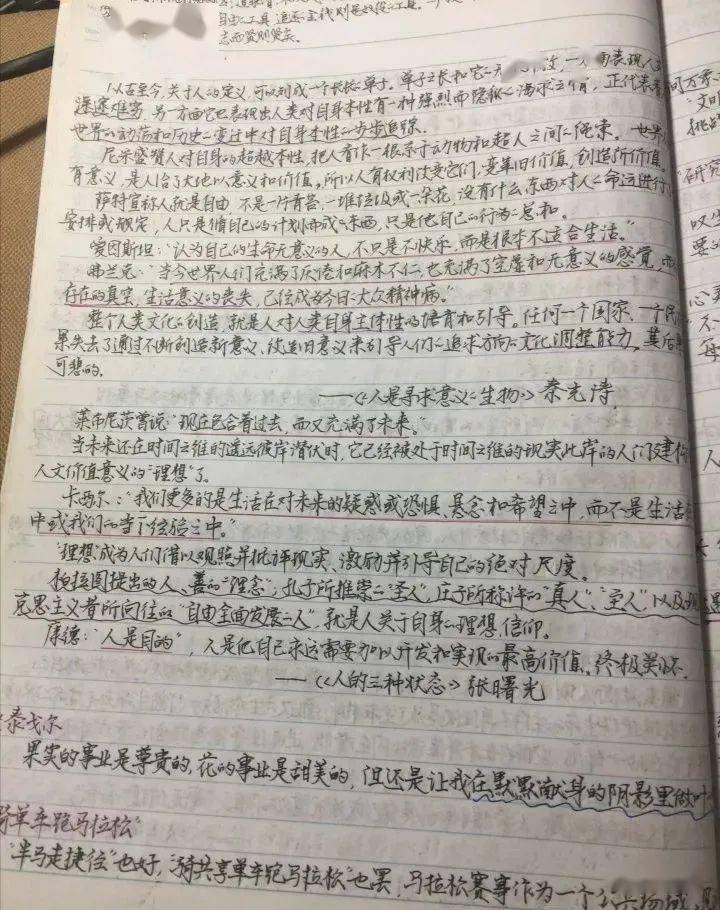 自由的工具 追逐金钱则是奴役的工具
志而贤则贤矣
从古至今,关于人的定义,可以列成一个长长的单子。单子之长和它
漫漫难穷 另一方面它也表现出人类对自身本性有一种强烈而隐秘的渴求之情,正代表着
世界的动荡和历史的变迁中对自身本性的步步追踪。
尼采盛赞人对自身的超越本性,把人看作一根系于动物和超人之间的绳索。世界
有意义,是人给了大地以意义和价值,所以人有权利改变它们,变革旧价值,创造新价值
萨特宣称人就是自由 不是一片青苔、一堆垃圾或一朵花,没有什么东西对人的命运进行
安排或规定,人只是循自己的计划而成的东西,只是他自己的行为的总和。
爱因斯坦:“认为自己的生命无意义的人,不只是不快乐,而是根本不适合生活。”
弗兰克:“当今世界人们充满了厌倦和麻木不仁,也充满了空虚和无意义的感觉,而
存在的真空,生活意义的丧失,已经成为今日的大众精神病。”
整个人类文化的创造,就是人对人类自身主体性的培育和引导。任何一个国家、一个民
果失去了通过不断创造新意义、改造旧意义来引导人们的追求方向的文化调整能力,其后果
可悲的。
——《人是寻求意义的生物》秦光涛
莱布尼茨曾说:“现在包含着过去,而又充满了未来。”
当未来还在时间之维的遥远彼岸潜伏时,它已经被处于时间之维的现实此岸的人们建构
人文价值意义的“理想”了。
卡西尔:“我们更多的是生活在对未来的疑惑或恐惧、悬念和希望之中,而不是生活
中或我们的当下经验之中。”
“理想”成为人们借以观照并批评现实、激励并引导自己的绝对尺度。
柏拉图提出的人、善的“理念”;孔子所推崇的“圣人”,庄子所称许的“真人”、“至人”,以及
克思主义者所向往的“自由全面发展的人”,就是人关于自身的理想、信仰。
康德:“人是目的”,人是他自己永远需要加以开发和实现的最高价值、终极关怀。
——《人的三种状态》张曙光
泰戈尔
果实的事业是尊贵的,花的事业是甜美的,但还是让我在默默献身的阴影里做叶
骑单车跑马拉松”
“半马走捷径”也好,“骑共享单车跑马拉松”也罢,马拉松赛事作为一个公共场域,